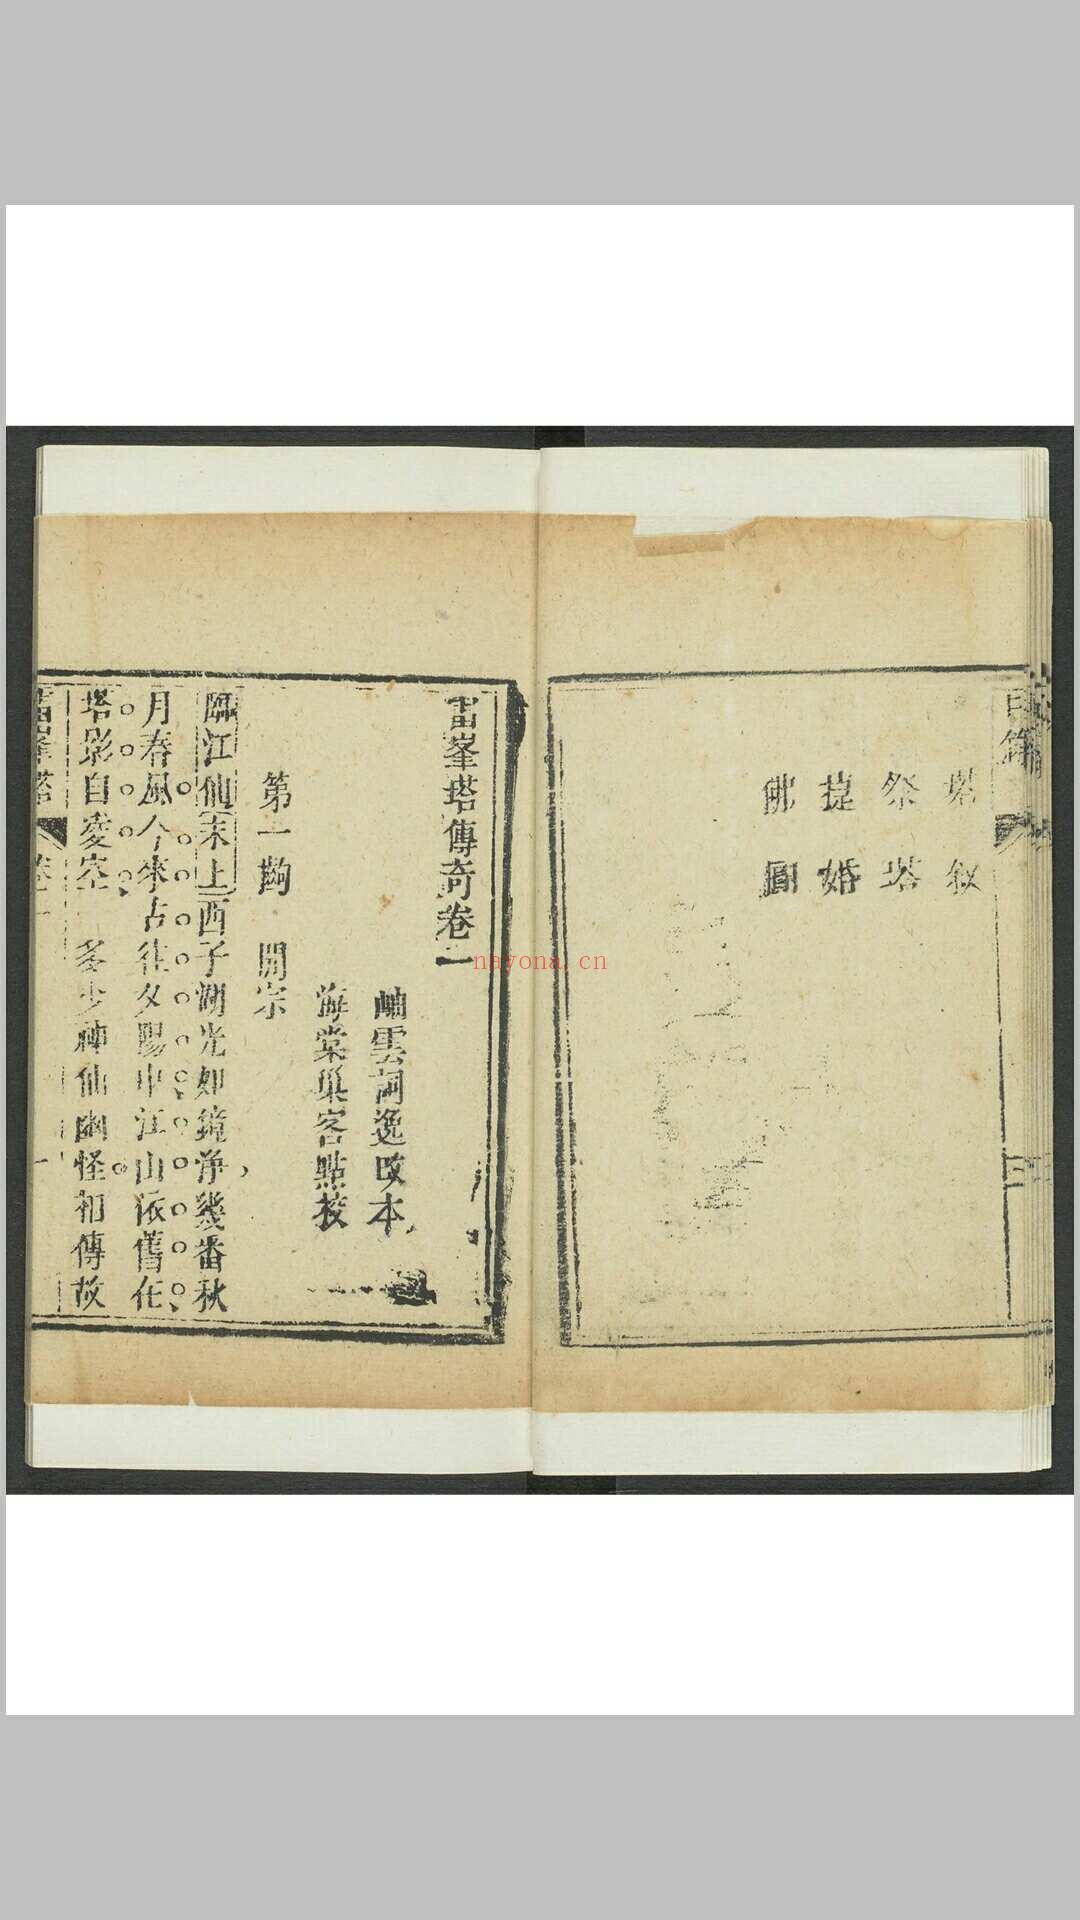 目錄
塔叙
祭塔
捷婚
佛圓
雷峯塔傳奇卷一
岫雲詞逸改本
海棠巢客點校
第一齣 開宗
臨江仙末上西子湖光如鏡淨幾番秋
月春風今來古往夕陽中江山依舊在
塔影自凌空 多少神仙幽怪相傳故
雷峯塔 卷一 一
nayona.cn